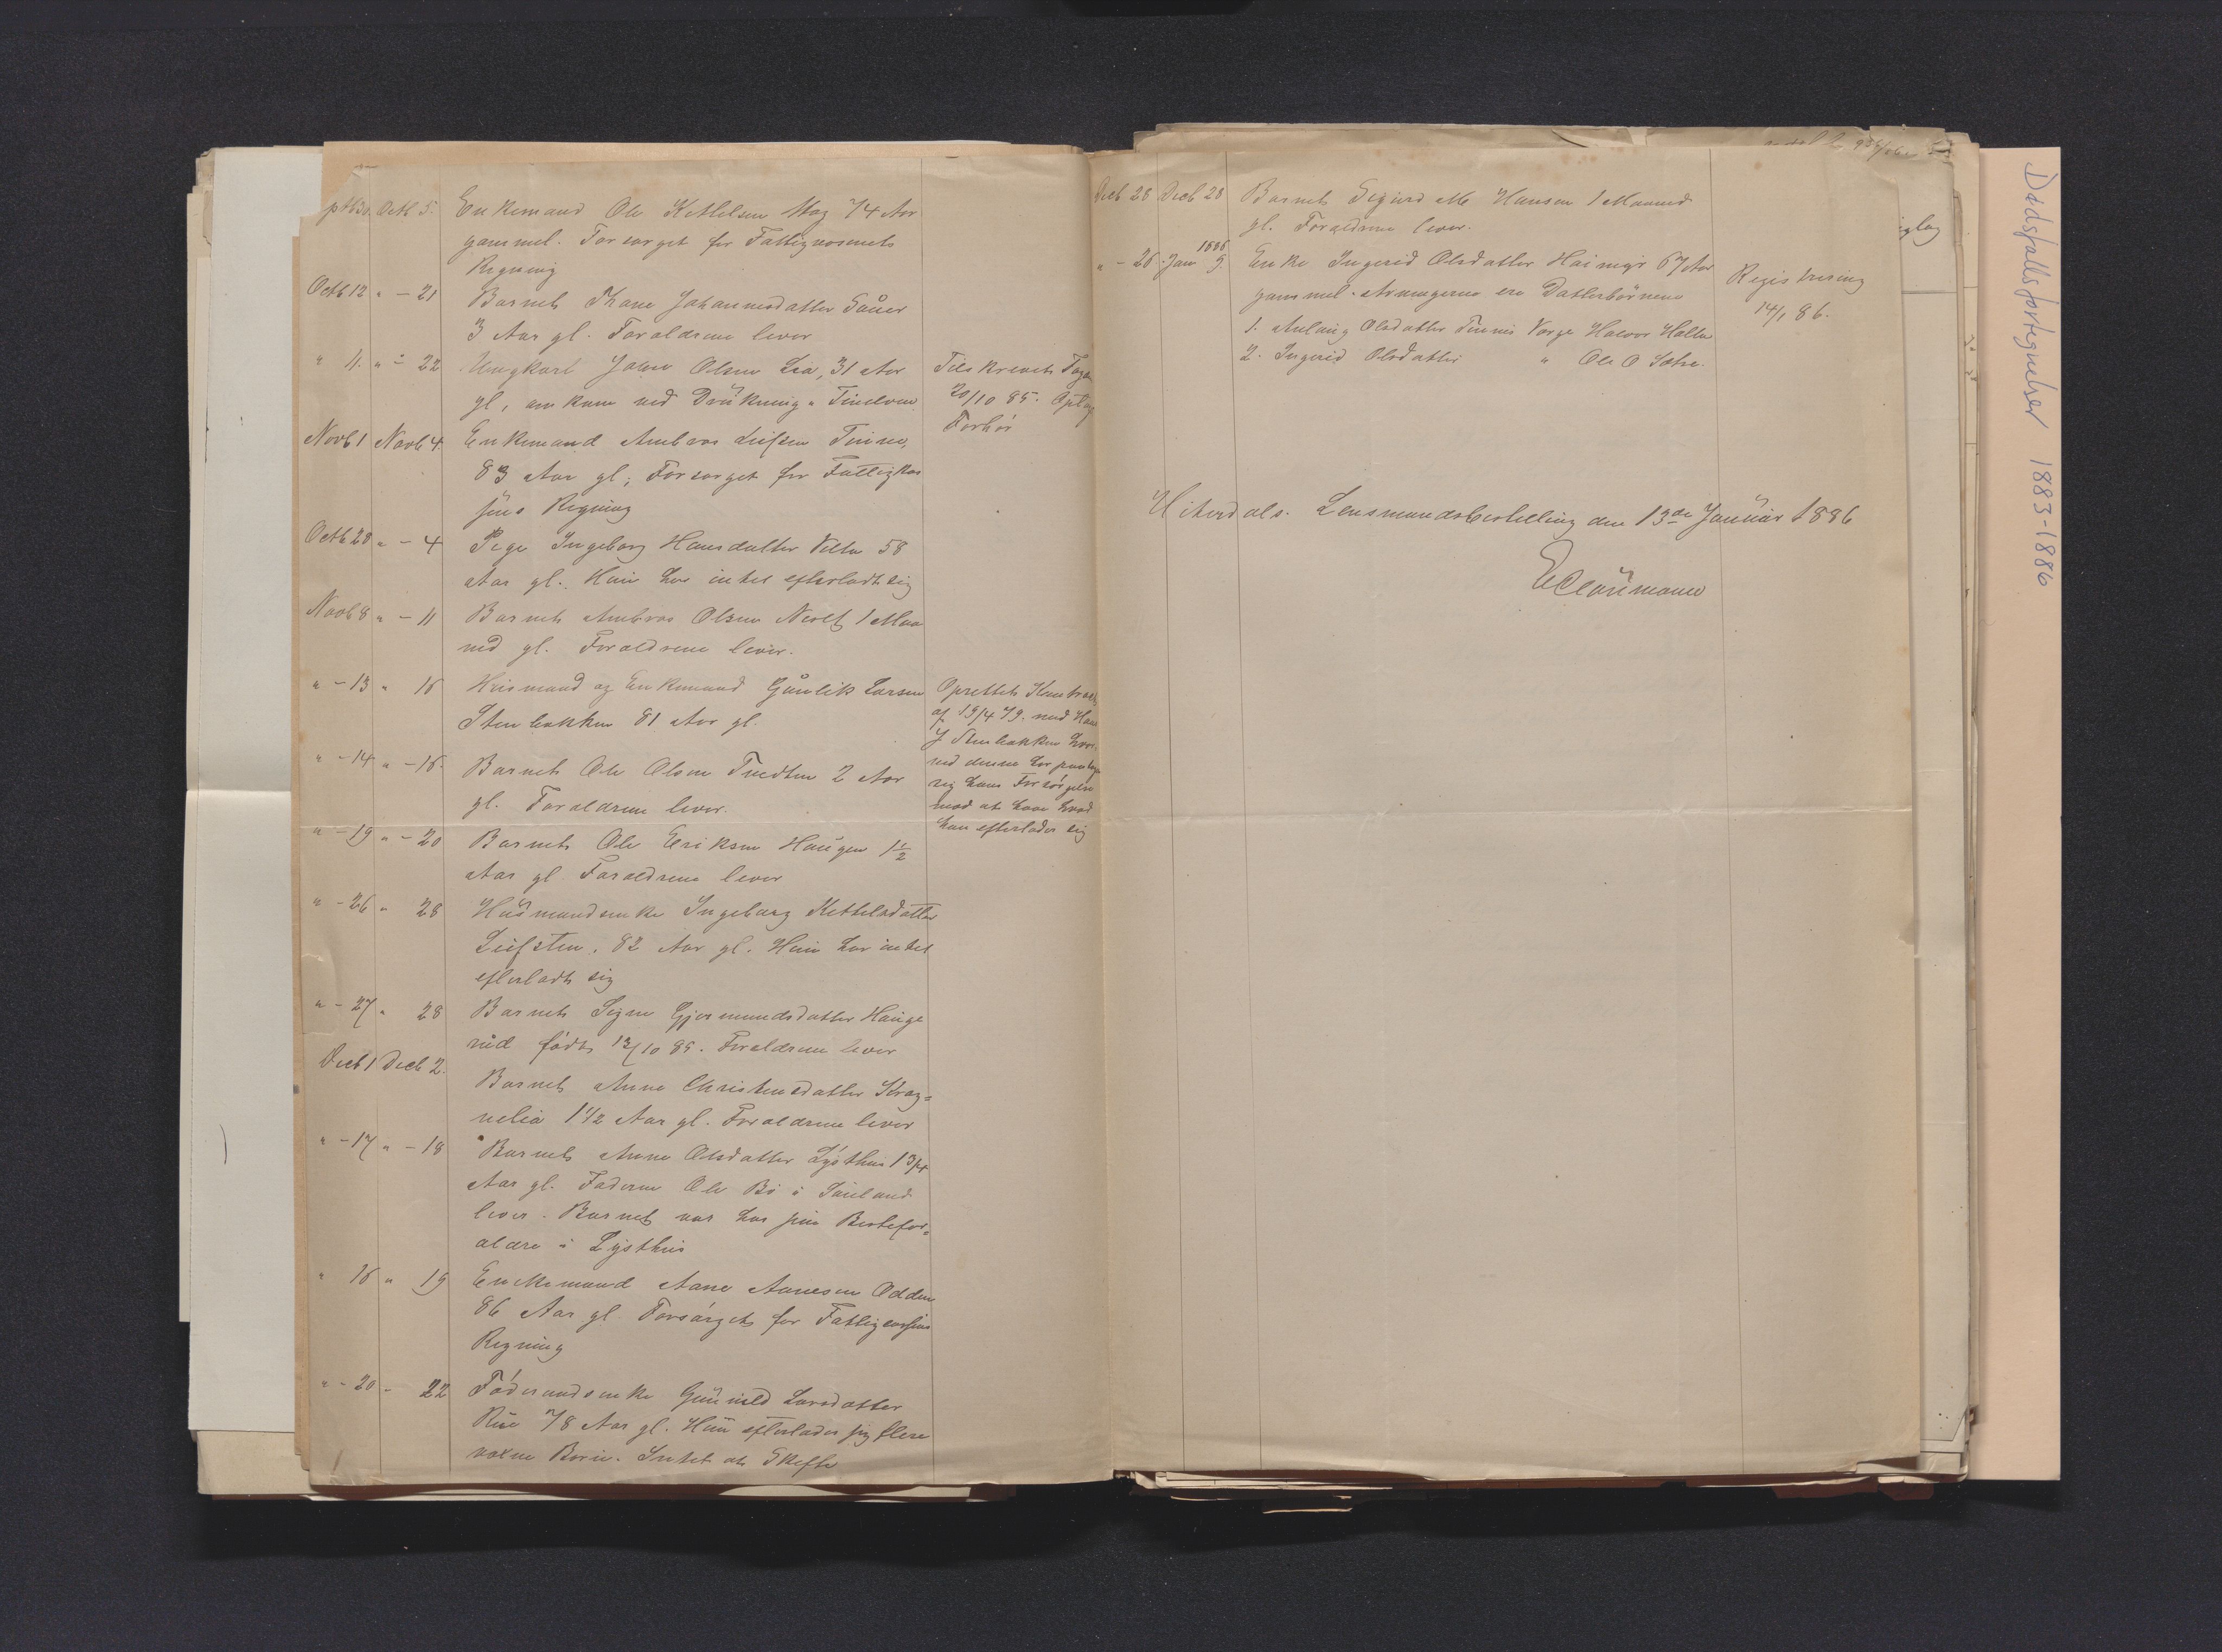 ptb 30. Octb 5. Enkemand Ole Kettelsen Mog 74 Aar
gammel. Forsørget for Fattigvæsenets
Regning
Octb 12 " - 21 Barnet Thone Johannesdatter Sauer
3 Aar gl. Forældrene lever
" 11. " - 22 Ungkarl John Olsen Lia, 31 Aar
gl, omkom ved Drukning i Tinelven
Tilskrevet Fogden
20/10 85. Optag
Forhør
Novb 1 Novb 4. Enkemand Ambros Leifsen Tinne,
83 Aar gl; Forsørget for Fattigkas
sens Regning
Octb 28 " - 4 Pige Ingeborg Hansdatter Velta 58
Aar gl. Hun har intet efterladt sig
Novb 8 " - 11 Barnet Ambros Olsen 1 Maa
ned gl. Forældrene lever.
" - 13 " 16 Husmand og Enkemand Gunlik Larsen
Stenbakken 81 Aar gl.
Oprettet Kontrakt
af 19/4 79. med Hans
J Stenbakken hvor
ved denne har paataget
sig hans Forsørgelse
mod at have hvad
han efterlader sig
" - 14 " - 16. Barnet Ole Olsen Tvedten 2 Aar
gl. Forældrene lever.
" - 19 " - 20 Barnet Ole Eriksen Haugen 1½
Aar gl. Forældrene lever
" - 26 " 28 Husmandsenke Ingeborg Kettelsdatter
Leifsten. 82 Aar gl. Hun har intet
efterladt sig
" - 27 " 28 Barnet Signe Gjermundsdatter Hauge
rud født 13/10 85. Forældrene lever
Decb 1 Decb 2. Barnet Anne Christensdatter Krag=
nelia 1 1/2 Aar gl. Forældrene lever
" - 17 " - 18 Barnet Anne Olsdatter Lysthus 1 3/4
Aar gl. Faderen Ole Bø i Sauland
lever. Barnet var hos sine Bestefor=
ældre i Lysthus
" 16 " 19 Enckemand Aane Aanesen Odden
86 Aar gl. Forsørget for Fattigcassens
Regning
" - 20 - 22 Føderaadsenke Gunild Larsdatter
Rue 78 Aar gl. Hun efterlader sig flere
voxne Børn. Intet at Skifte
Decb 28 Decb 28 Barnet Sigurd Hansen 1 Maaned
gl. Forældrene lever.
" - 26. Jan 1886 9. Enke Ingerid Olsdatter Haimyr 67 Aar
gammel. Arvingerne ere Datterbørnene
1. Anlaug Olsdatter Tinnes Verge Halvor Holten
2. Ingerid Olsdatter " Ole O Sætre.
Registrering
14/1 86.
Hiterdals Lensmandsbestilling den 13de Januar 1886
E Claumann
Dødsfallsfortegnelser 1883-1886